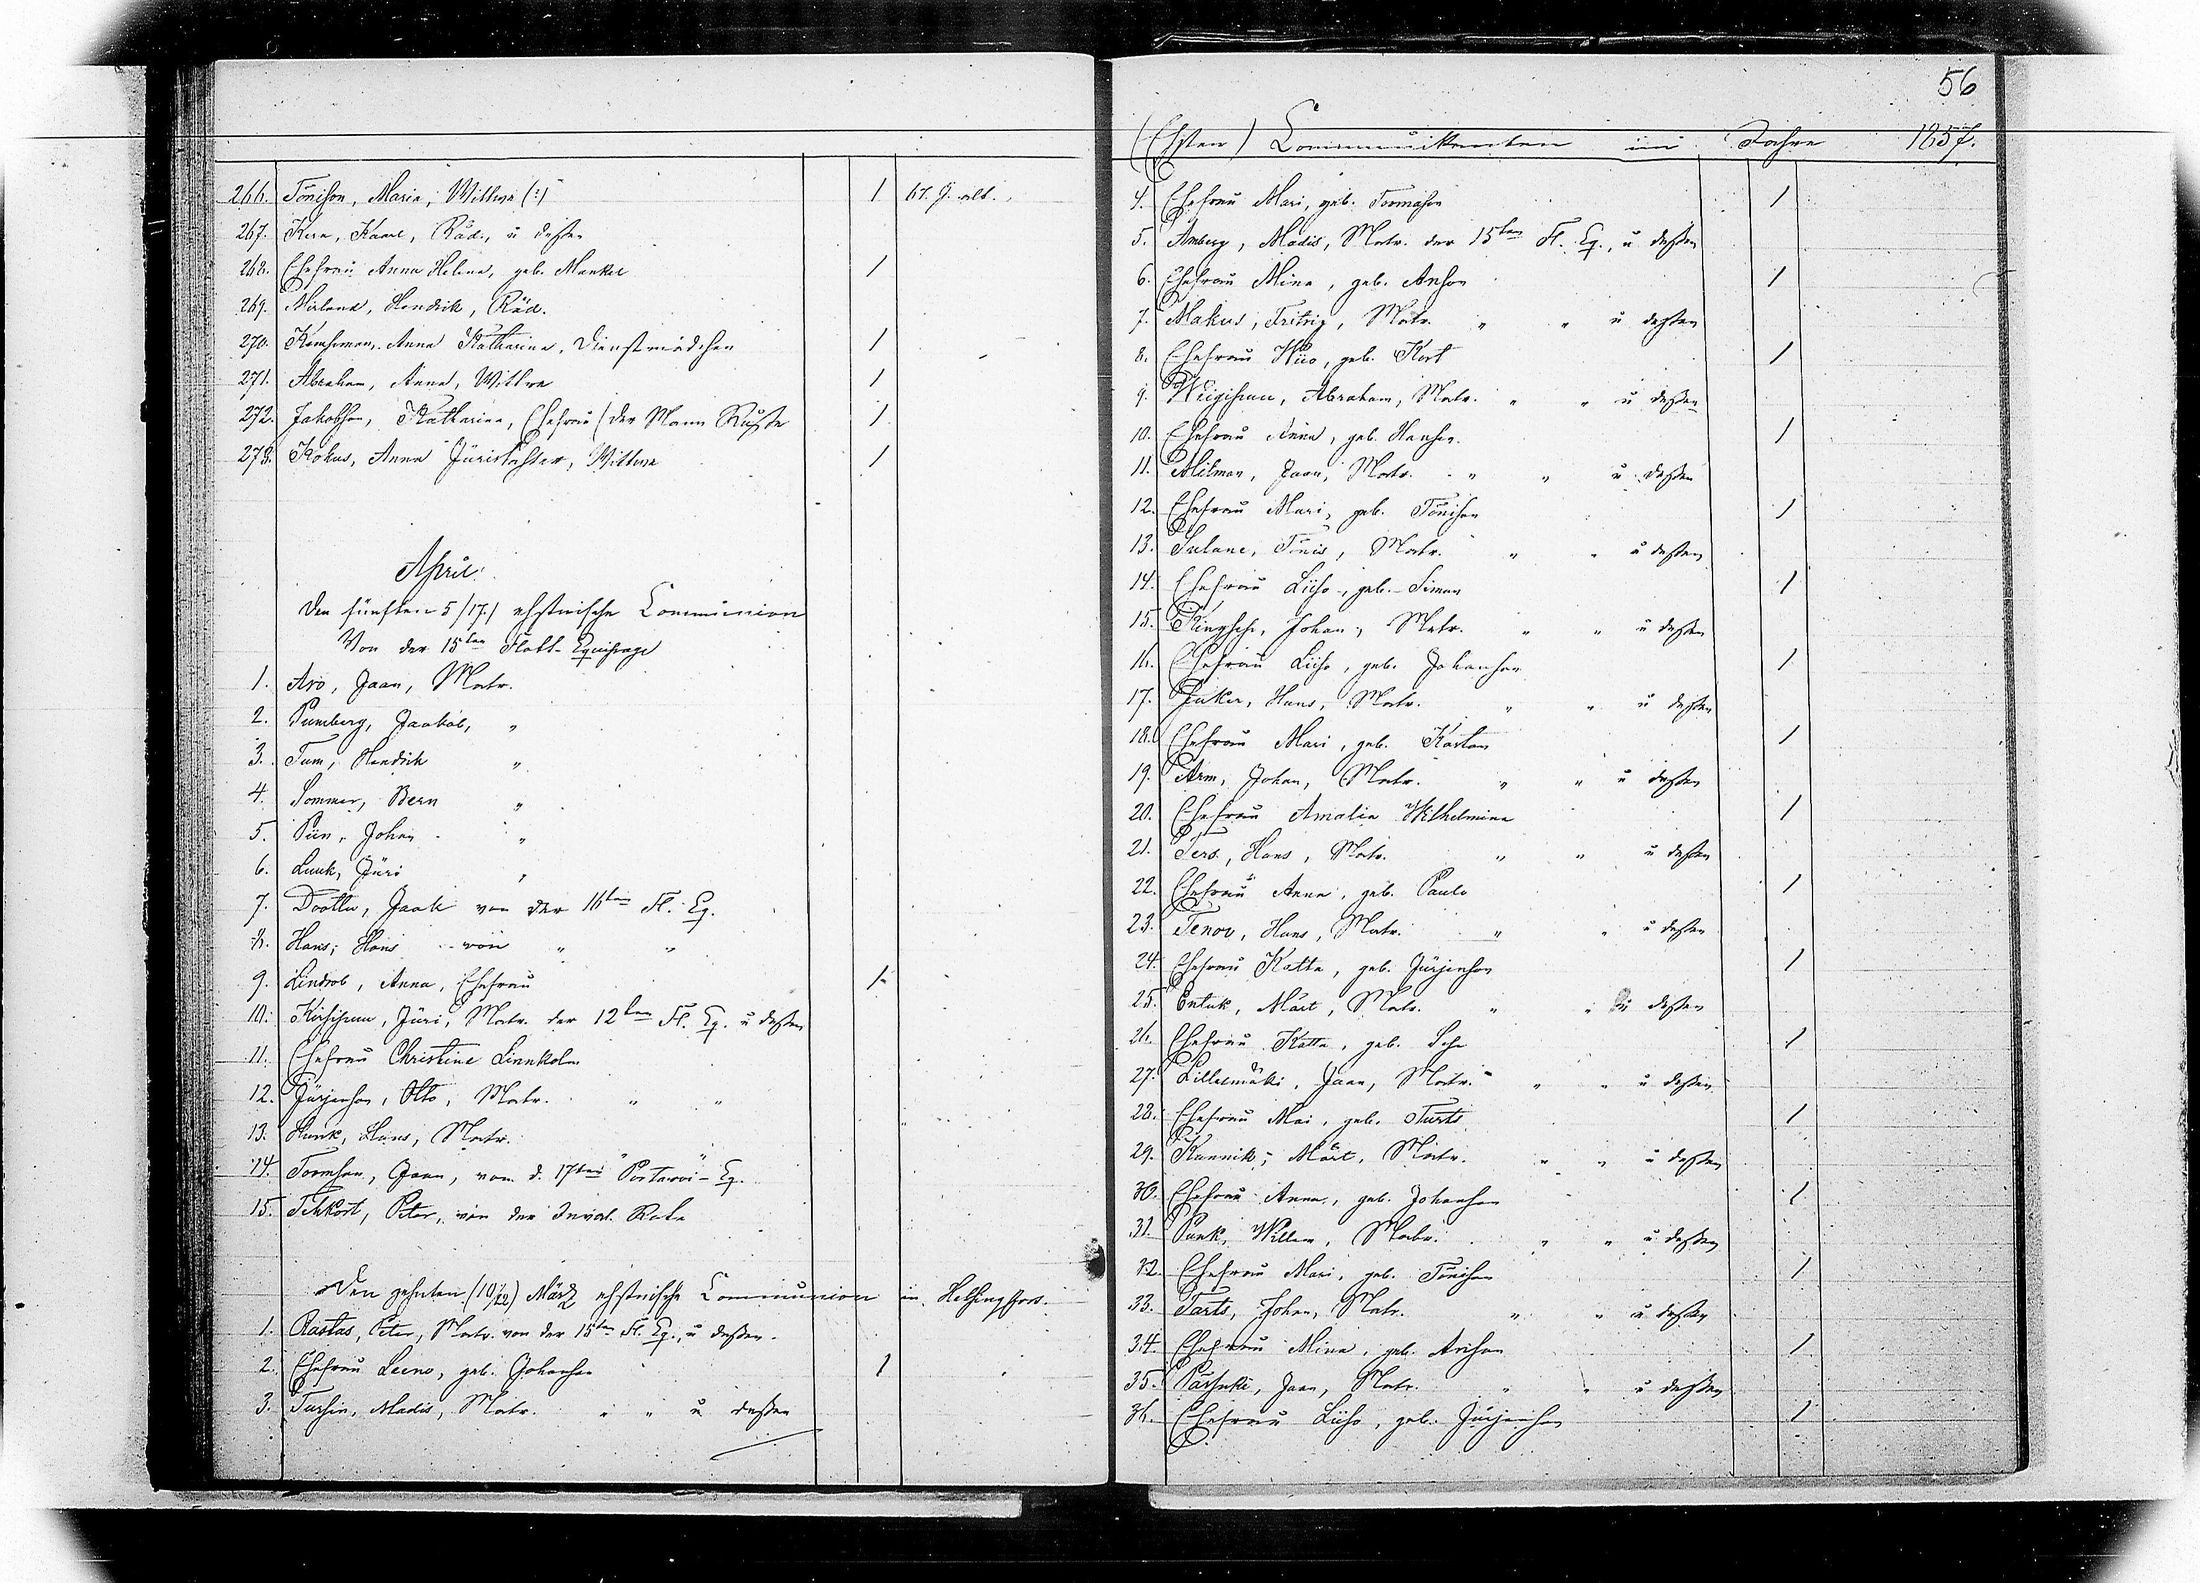 266. Tönison, Maria, Wittwe (:) 1 67. J. alt.
267. Kern, Kaarl, Räd., u deßen
268. Ehefrau Anna Helena, geb. Mankel 1
269. Mirland, Hendrik, Räd.
270. Anna Katharina, Dienstmädchen 1
271. Abraham, Anna, Wittwe 1
272. Jakobson, Katharina, Ehefrau (der Mann Ruße 1
273. Kokus, Anna Jüritochter, Wittwe 1
April.
Den fünften 5/17.) ehstnische Communion
Von der 15ten Flott-Equipage
1. Aro, Jaan, Matr.
2. Pumberg, Jaakob, "
3. Tum, Hendrik "
4. Sommer, Bern "
5. Piin, Johan "
6. Luuk, Jüri "
7. Jaak von der 16ten Fl. Eq.
8. Hans, Hans von " "
9. Lindrob, Anna, Ehefrau 1
10. Jüri, Matr. der 12ten Fl. Eq. u deßen
11. Ehefrau Christine Linnkolm
12. Jürjenson, Otto, Matr. " "
13. Hunk, Hans, Matr. " "
14. Toomson, Jaan, von d. 17ten Eq.
15. Tehkort, Peter, von der Inval. Rote
Den zehnten (10/22) März ehstnische Communion in Helsingfors.
1. Rastas, Peter, Matr. von der 15ten Fl. Eq., u deßen
2. Ehefrau Leeno, geb. Johanson 1
3. Tursin, Madis, Matr. " " u deßen
56
(Ehsten) Communikanten im Jahre 1857.
4. Ehefrau Mari, geb. Toomason 1
5. Amberg, Madis, Matr. der 15ten Fl. Eq., u deßen
6. Ehefrau Mina, geb. Anson 1
7. Makus, Matr. " " u deßen
8. Ehefrau geb. Kort 1
9. Abraham, Matr. " " u deßen
10. Ehefrau Anna, geb. Hansen 1
11. Milman, Jaan, Matr. " " u deßen
12. Ehefrau Mari, geb. Tönison 1
13. Sulane, Tönis, Matr. " " u deßen
14. Ehefrau Liiso, geb. Siman 1
15. Johan, Matr. " " u deßen
16. Ehefrau Liiso, geb. Johanson 1
17. Juker, Hans, Matr. " " u deßen
18. Ehefrau Mari, geb. Karlson 1
19. Arm, Johan, Matr. " " u deßen
20. Ehefrau Amalia Wilhelmina 1
21. Ters, Hans, Matr. " " u deßen
22. Ehefrau Anna, geb. Paulo 1
23. Tenov, Hans, Matr. " " u deßen
24. Ehefrau Katta, geb. Jürjenson 1
25. Entuk, Märt, Matr. " " u deßen
26. Ehefrau Katta, geb. 1
27. Lillemäki, Jaan, Matr. " " u deßen
28. Ehefrau Mai, geb. Turts 1
29. Kunnik, Märt, Matr. " " u deßen
30. Ehefrau Anna, geb. Johanson 1
31. Punk, Willem, Matr. " " u deßen
32. Ehefrau Mari, geb. Tönison 1
33. Tarts, Johan, Matr. " " u deßen
34. Ehefrau Mina, geb. 1
35. Jaan, Matr. " " u deßen
36. Ehefrau Liiso, geb. Jürjenson 1